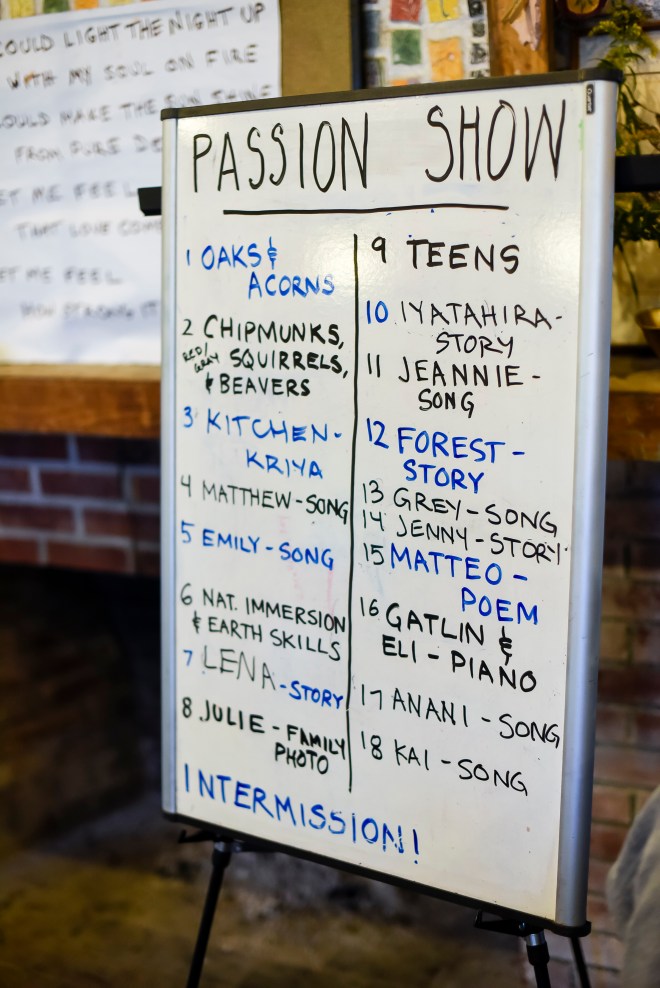 COULD LIGHT THE NIGHT UP
WITH MY SOUL ON FIRE
COULD MAKE THE SUN SHINE
FROM PURE DE
ET ME FEEL
THAT LOVE COME
ET ME FEEL
PASSION SHOW
1 OAKS &
ACORNS
2 CHIPMUNKS,
RED/
GRAY SQUIRRELS,
& BEAVERS
3 KITCHEN-
KRIYA
4 MATTHEW-SONG
5 EMILY-SONG
6 NAT. IMMERSION
& EARTH SKILLS
7 LENA-STORY
8 JULIE-FAMILY
PHOTO
INTERMISSION!
9 TEENS
10 IYATAHIRA-
STORY
11 JEANNIE-
SONG
12 FOREST-
STORY
13 GREY-SONG
14 JENNY-STORY
15 MATTEO-
POEM
16 GATLIN &
ELI-PIANO
17 ANANI-SONG
18 KAI-SONG